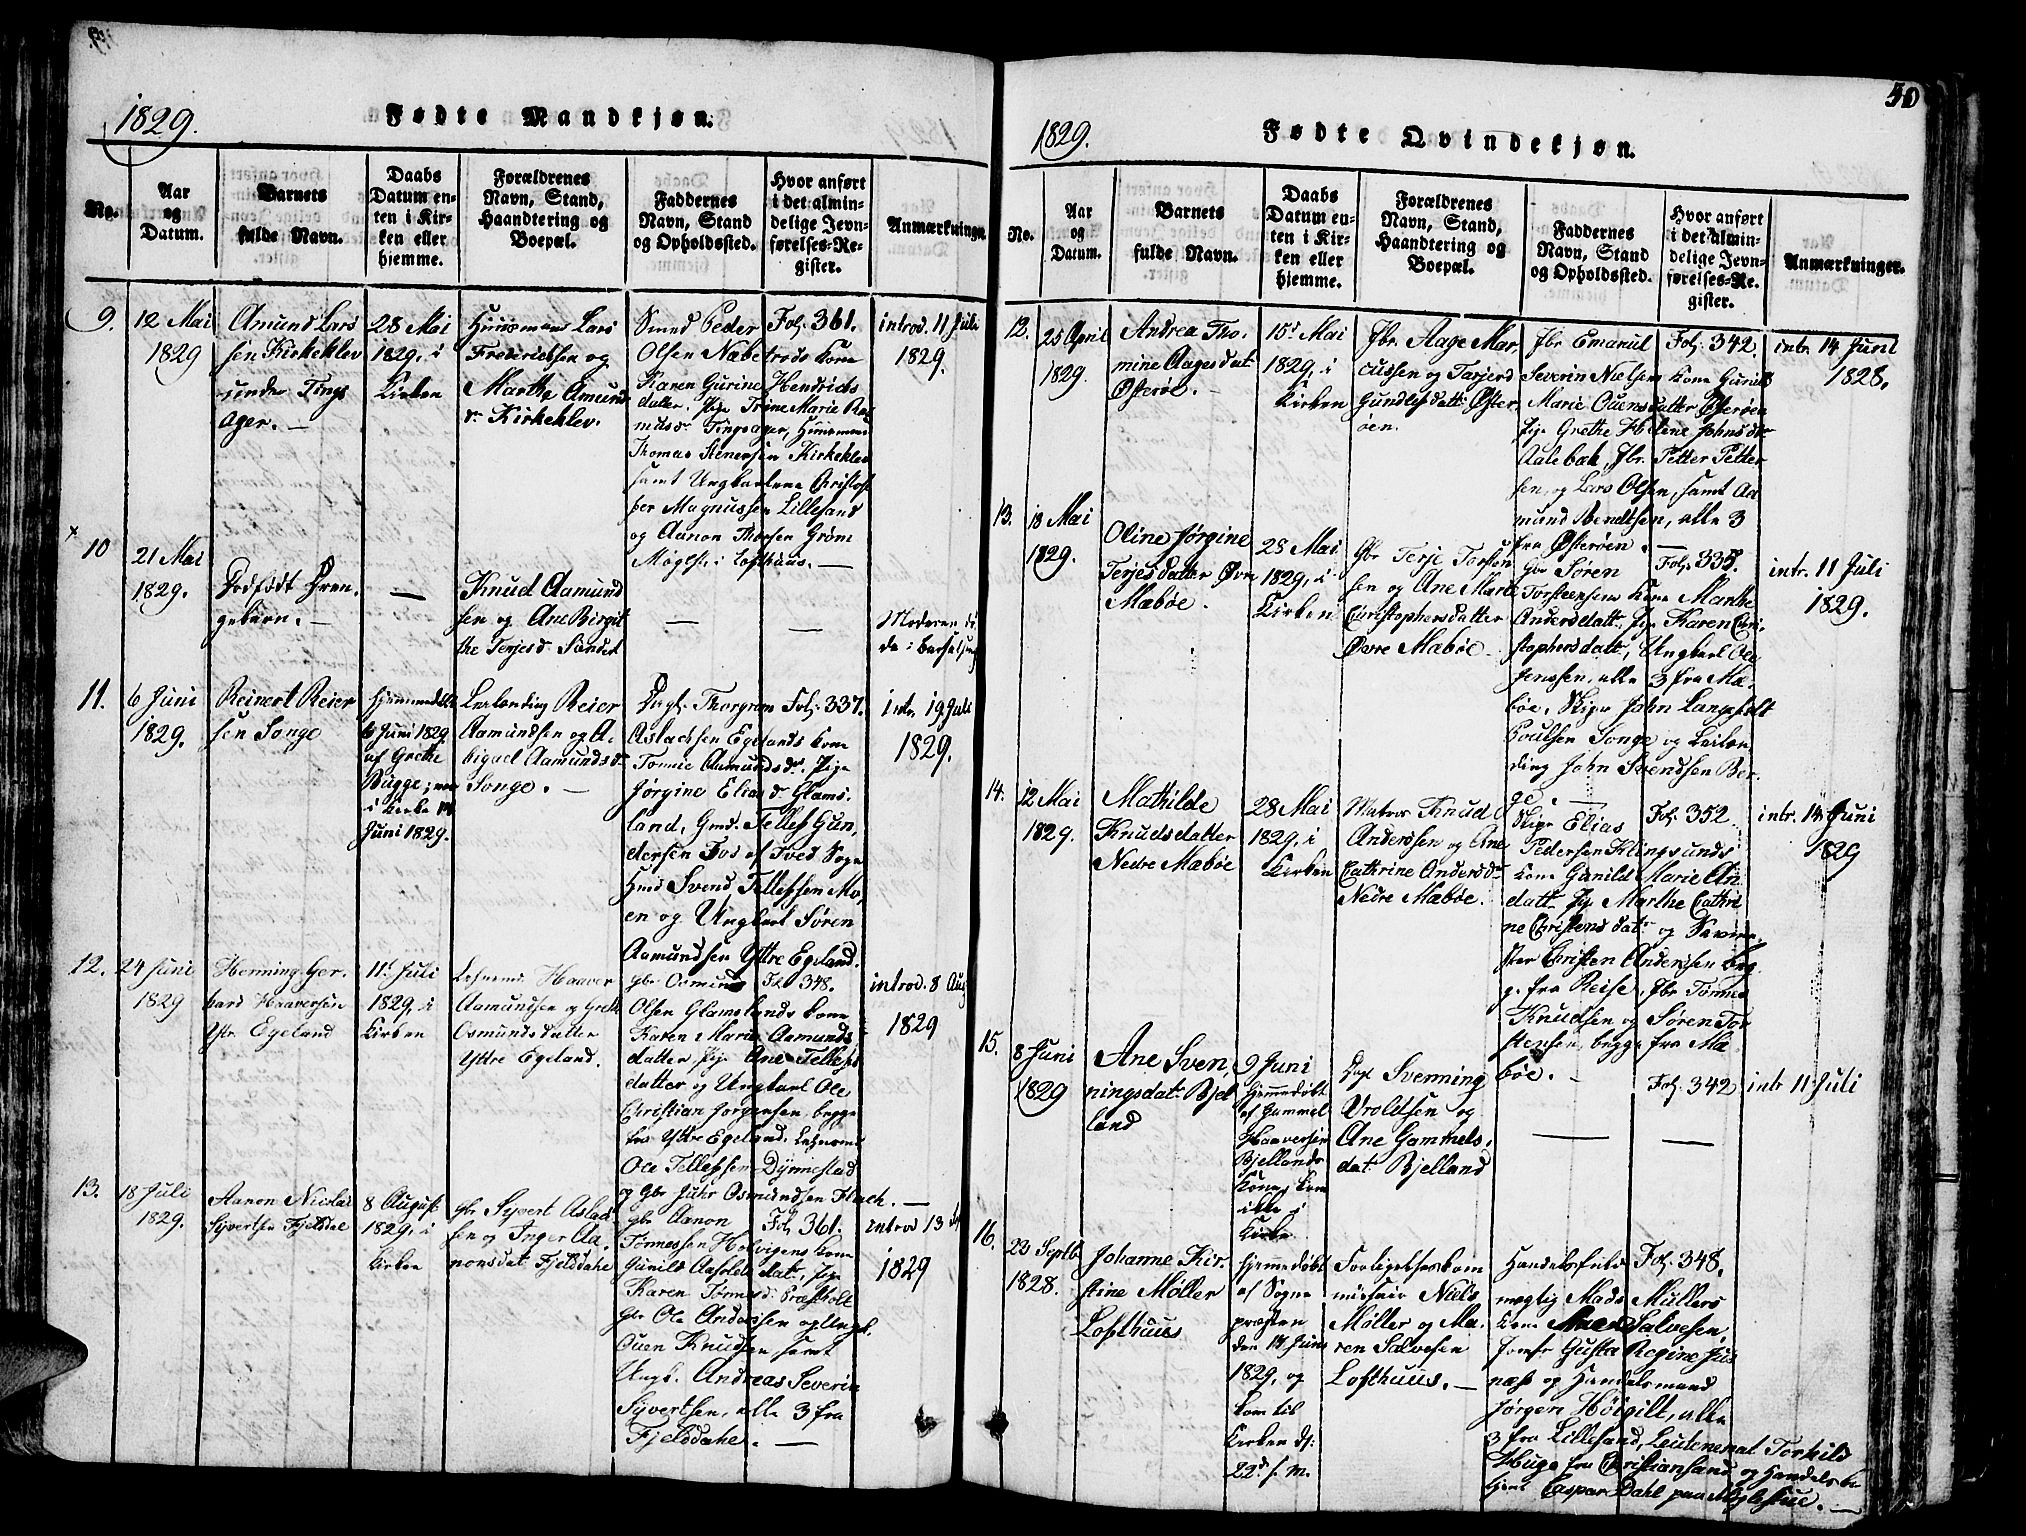 1829.
Fødte Mandkjøn.
No.
Aar
og
Datum.
Barnets
fulde Navn.
Daabs
Datum en-
ten i Kir-
ken eller
hjemme.
Forældrenes
Navn, Stand,
Haandtering og
Boepæl.
Faddernes
Navn, Stand
og Opholdssted.
Hvor anført
i det almin-
delige Jevn-
førelses-Re-
gister.
Anmærkninger
9.
12 Mai
1829
Amund Lars
sen Kirkeklev
under Tings
ager. —
28 Mai
1829, i
Kirken
Huusmand Lars
Frederichsen og
Marthe Aamund
dr Kirkeklev.
Smed Peder
Olsen Næbetrods Kone
Karen Gurine Hendrichs
datter, Pige Trine Marie Ras
musdr Tingsager, Huusmand
Thomas Stenersen Kirkeklev
samt Ungkarlene Christof
fer Magnussen Lillesand
og Aanon Thorsen Grøm
Møglst. i Lofthuus. —
Fol. 361.
introd. 11 Juli
1829.
10
21 Mai
1829.
Dødfødt Dren-
gebarn. —
—
Knud Aamund
sen og Ane Birgit
the Terjesd Sandert
—
—
Moderen dø
de i barselseng
11.
6 Juni
1829.
Reinert Reier
sen Songe
Hjemmedøbt
6 Juni 1829
af Grethe
Bugge; var
i Kirke 14
Juni 1829.
Leilænding Reier
Aamundsen og A-
bigael Aamundsdr
Songe. —
Dagl. Thorgrim
Aslachsen Egelands Kone
Tonnie Aamundsdr. Pige
Jørgine Eliasd Glams-
land, Gmd. Tellef Gun,
dersen Fos af Tved Sogn
Hmd Svend Tellefsen Mo,
en og Ungkarl Søren
Aamundsen Yttre Egeland.
Fol. 337.
intr. 19 Juli
1829.
12.
24 Juni
1829
Henning Ger-
hard Haaversen
Ytr. Egeland
11t Juli
1829, i
Kirken
Haaver
Aamundsen og Greth
Osmundsdatter
Yttre Egeland.
gbr Osmund
Olsen Glamslands Kone
Karen Marie Aamunds
datter, Pige Ane Tellefs
datter og Ungkarl Ole
Christian Jørgensen, begge
fra Yttre Egeland.
Ole Tellefsen Dynnestad
og Gbr Juhr Osmundsen Flach. —
Fol 348.
introd. 8 Aug
1829
13.
18 Juli
1829.
Aanon Nicolai
Syvertsen Fjeldal
8 August
1829, i
Kirken
gbr Syvert Aslach
sen og Inger Aa-
nonsdat Fjelddahl
gbr Aanon
Tønnessen Holvigens Kone
Gunild Aasoldsdat., Pige
Karen Tønnesd. Præstholt
gbr Ole Anderssen og Ungk.
Ouen Knudsen samt
Ungk. Andreas Severin
Syvertsen, alle 3 fra
Fjelddahl. —
Fol 361.
introd 13
1829
50
1829.
Fødte Qvindekjøn.
No.
Aar
og
Datum.
Barnets
fulde Navn.
Daabs
Datum en-
ten i Kir-
ken eller
hjemme.
Forældrenes
Navn, Stand,
Haandtering og
Boepæl.
Faddernes
Navn, Stand
og Opholdssted.
Hvor anført
i det almin-
delige Jevn-
førelses-Re-
gister.
Anmærkninger.
12.
25 April
1829
Andrea Tho-
mine Aagesdat
Østerøe. —
15t Mai
1829, i
Kirken
fbr. Aage Mar,
cussen og Tarjerd
Gundlefsdattr Øster,
øen.
fbr Emanuel
Severin Nielsens Kone Gunild
Marie Ouensdatter Østerøen
Pige Grethe Helene Johnsdr
Aalebæk, fbr. Petter Petter
sen, og Lars Olsen, samt Aa
mund Bendtsen, alle 3
fra Østerøen. —
Fol. 342.
intr. 14 Juni
1828.
13.
18 Mai
1829.
Oline Jørgine
Terjesdatter Øvre
Mæbøe.
28 Mai
1829, i
Kirken
Gbr Terje Torsten
sen og Ane Marie
Christophersdatter
Øvre Mæbøe —
Gbr Søren
Torsteensens Kone Marthe
Andersdatt., Pige Karen Chri-
stophersdatt, Ungkarl Ole
Jenssen, alle 3 fra Mæ-
bøe, Skipr John Langfeldt
Poulsen Songe og Leilæn
ding John Svendsen Ber-
ge. —
Fol. 335.
intr. 11 Juli
1829.
14.
12 Mai
1829.
Mathilde
Knudsdatter
Nedre Mæbøe
28 Mai
1829, i
Kirken
Matros Knud
Anderssen og Ane
Cathrine Andersdr
Nedre Mæbøe.
Skipr Elias
Pedersen Klingsunds
Kone Gunild Marie An
datt. Pige Marthe Cathri
ne Christensdatr og
Christen Anderssen beg
ge fra Reise, fbr Tønnes
Knudsen og Søren Tor
stensen, begge fra Mæ-
bøe. —
Fol. 352.
intr. 14 Juni
1829
15.
8 Juni
1829
Ane Sven,
ningsdatr Bjel
land
9 Juni
hjemmedøbt
af Gammel
Haaversen
Bjellands
Kone, kom
ikke i
Kirke.
Dagl Svenning
Uroldsen og
Ane Gammels-
dat Bjelland
—
Fol. 342
—
intr 11 Juli
16.
22 Septb
1828.
Johanne Kir-
stine Møller
Lofthuus
hjemmedøbt
af Sogne
præsten
den 18 Juni
1829, og
kom til
Kirken d:
22d s. m.
Forligelseskom
missair Niels
Møller og Ma-
ren Salvesen
Lofthuus. —
Handelsfuld
mægtig Mads Müllers
Kone Maren Salvesen,
Jomfr Gusta Regine Jus
næs og Handelsmand
Jørgen Höigilt, alle
3 fra Lillesand, Leutenenat Torkild
Huge fra Christiansand og Handelsbe
tjent Caspar Dahl paa Møglestue. —
Fol. 348.